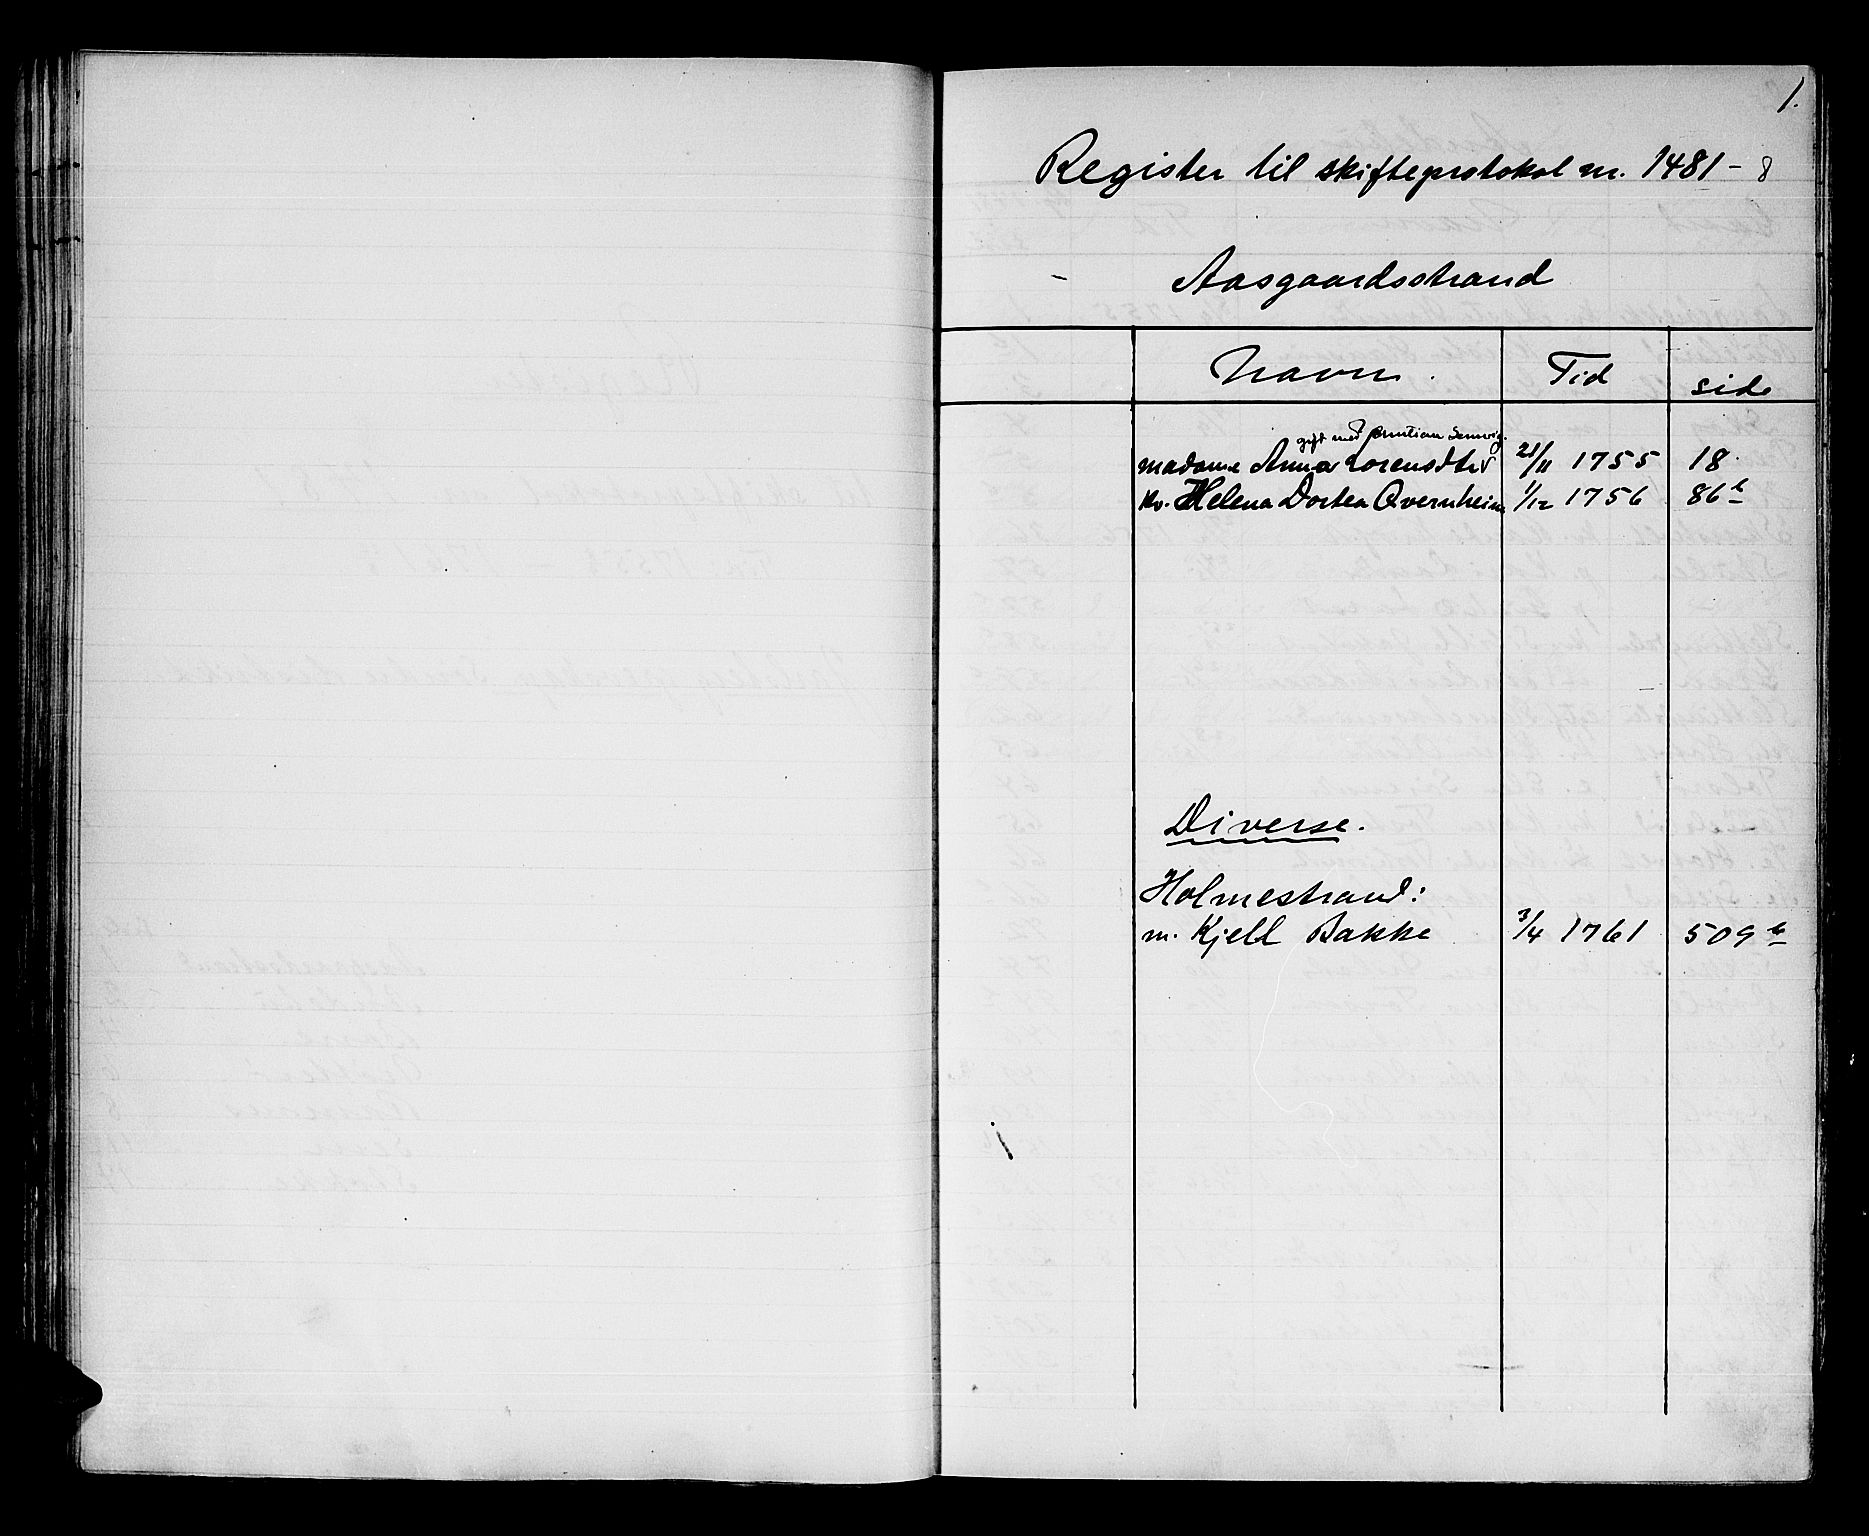 1.
Register til skifteprotokol nr. 1481 - 8
Aasgaardsstrand
Navn. Tid side
gift med Christian Semvig.
madame Anna Lorensdtr 21/11 1755 18.
kv. Helena Dortea Qvernheim 1/12 1756 86 b
Diverse.
Holmestrand:
m. Kjell Bakke 3/4 1761 509 b